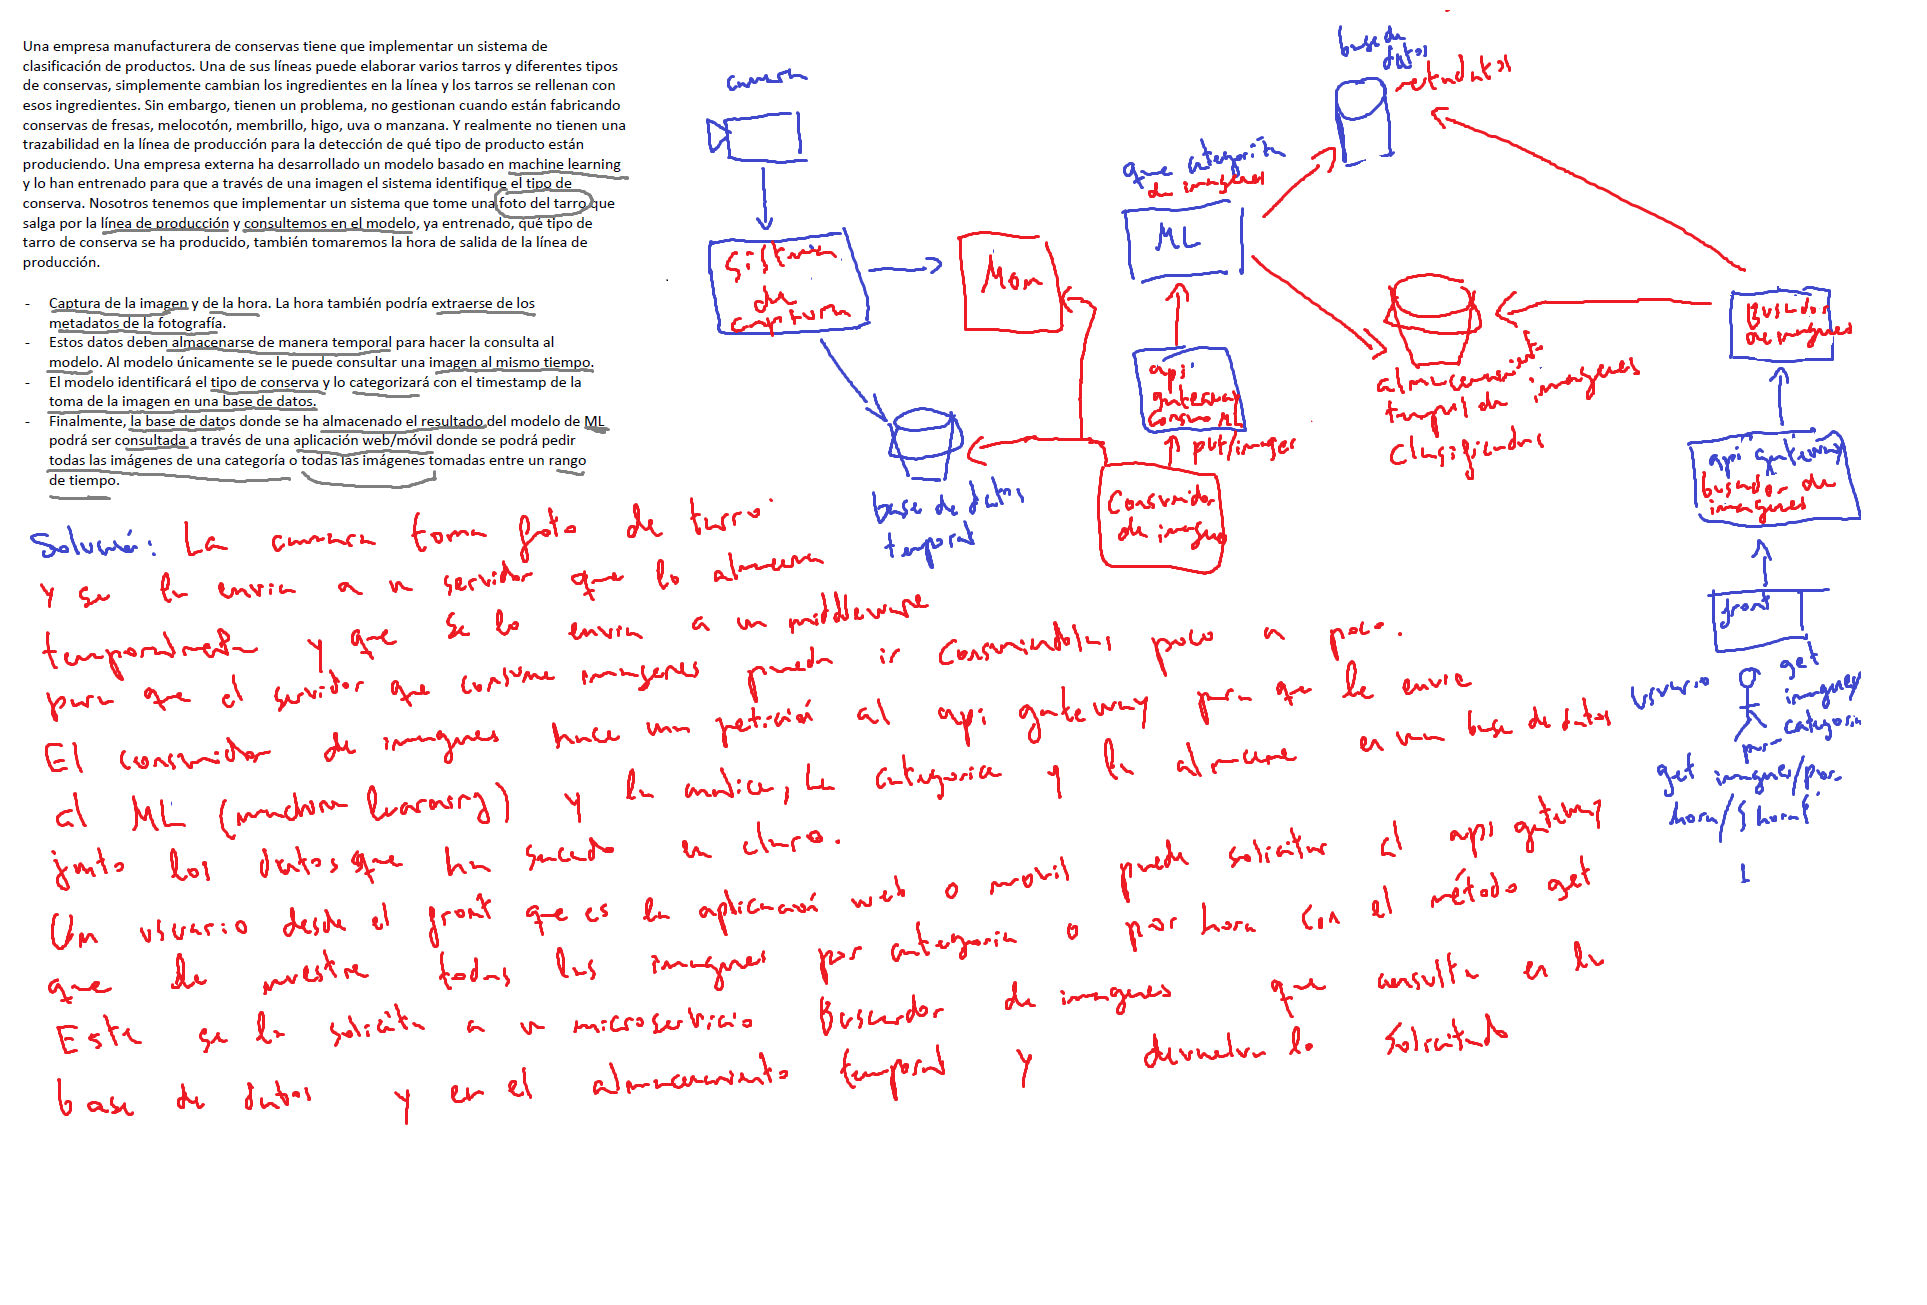 Una empresa manufacturera de conservas tiene que implementar un sistema de
clasificación de productos. Una de sus líneas puede elaborar varios tarros y diferentes tipos
de conservas, simplemente cambian los ingredientes en la línea y los tarros se rellenan con
esos ingredientes. Sin embargo, tienen un problema, no gestionan cuando están fabricando
conservas de fresas, melocotón, membrillo, higo, uva o manzana. Y realmente no tienen una
trazabilidad en la línea de producción para la detección de qué tipo de producto están
produciendo. Una empresa externa ha desarrollado un modelo basado en machine learning
y lo han entrenado para que a través de una imagen el sistema identifique el tipo de
conserva. Nosotros tenemos que implementar un sistema que tome una foto del tarro que
salga por la línea de producción y consultemos en el modelo, ya entrenado, qué tipo de
tarro de conserva se ha producido, también tomaremos la hora de salida de la línea de
producción.
- Captura de la imagen y de la hora. La hora también podría extraerse de los
metadatos de la fotografía.
- Estos datos deben almacenarse de manera temporal para hacer la consulta al
modelo. Al modelo únicamente se le puede consultar una imagen al mismo tiempo.
- El modelo identificará el tipo de conserva y lo categorizará con el timestamp de la
toma de la imagen en una base de datos.
- Finalmente, la base de datos donde se ha almacenado el resultado del modelo de ML
podrá ser consultada a través de una aplicación web/móvil donde se podrá pedir
todas las imágenes de una categoría o todas las imágenes tomadas entre un rango
de tiempo.
camara
Sistema
de
captura
Mom
base de datos
temporal
Consumidor
de imagenes
put/imagen
api
gateway
Consumo ML
que categoriza
de imagenes
ML
base de
datos
metadatos
almacenamiento
temporal de imagenes
Clasificadas
Buscador
de imagenes
api gateway
buscador de
imagenes
front
usuario
get
imagenes/
por
categoria
get imagenes/por
hora/{hora}
Solución: La camara toma foto de tarro
Y se la envia a un servidor que lo almacena
temporalmente y que se lo envia a un middleware
para que el servidor que consume imagenes pueda ir consumiendolas poco a poco.
El consumidor de imagenes hace una petición al api gateway para que le envie
al ML (machine learning) y la analice, la categorice y la almacene en una base de datos
junto los datos que ha sacado en claro.
Un usuario desde el front que es la aplicación web o movil puede solicitar al api gateway
que le muestre todas las imagenes por categoria o por hora con el método get
Este se la solicita a un microservicio Buscador de imagenes que consulta en la
base de datos y en el almacenamiento temporal y devuelva lo solicitado